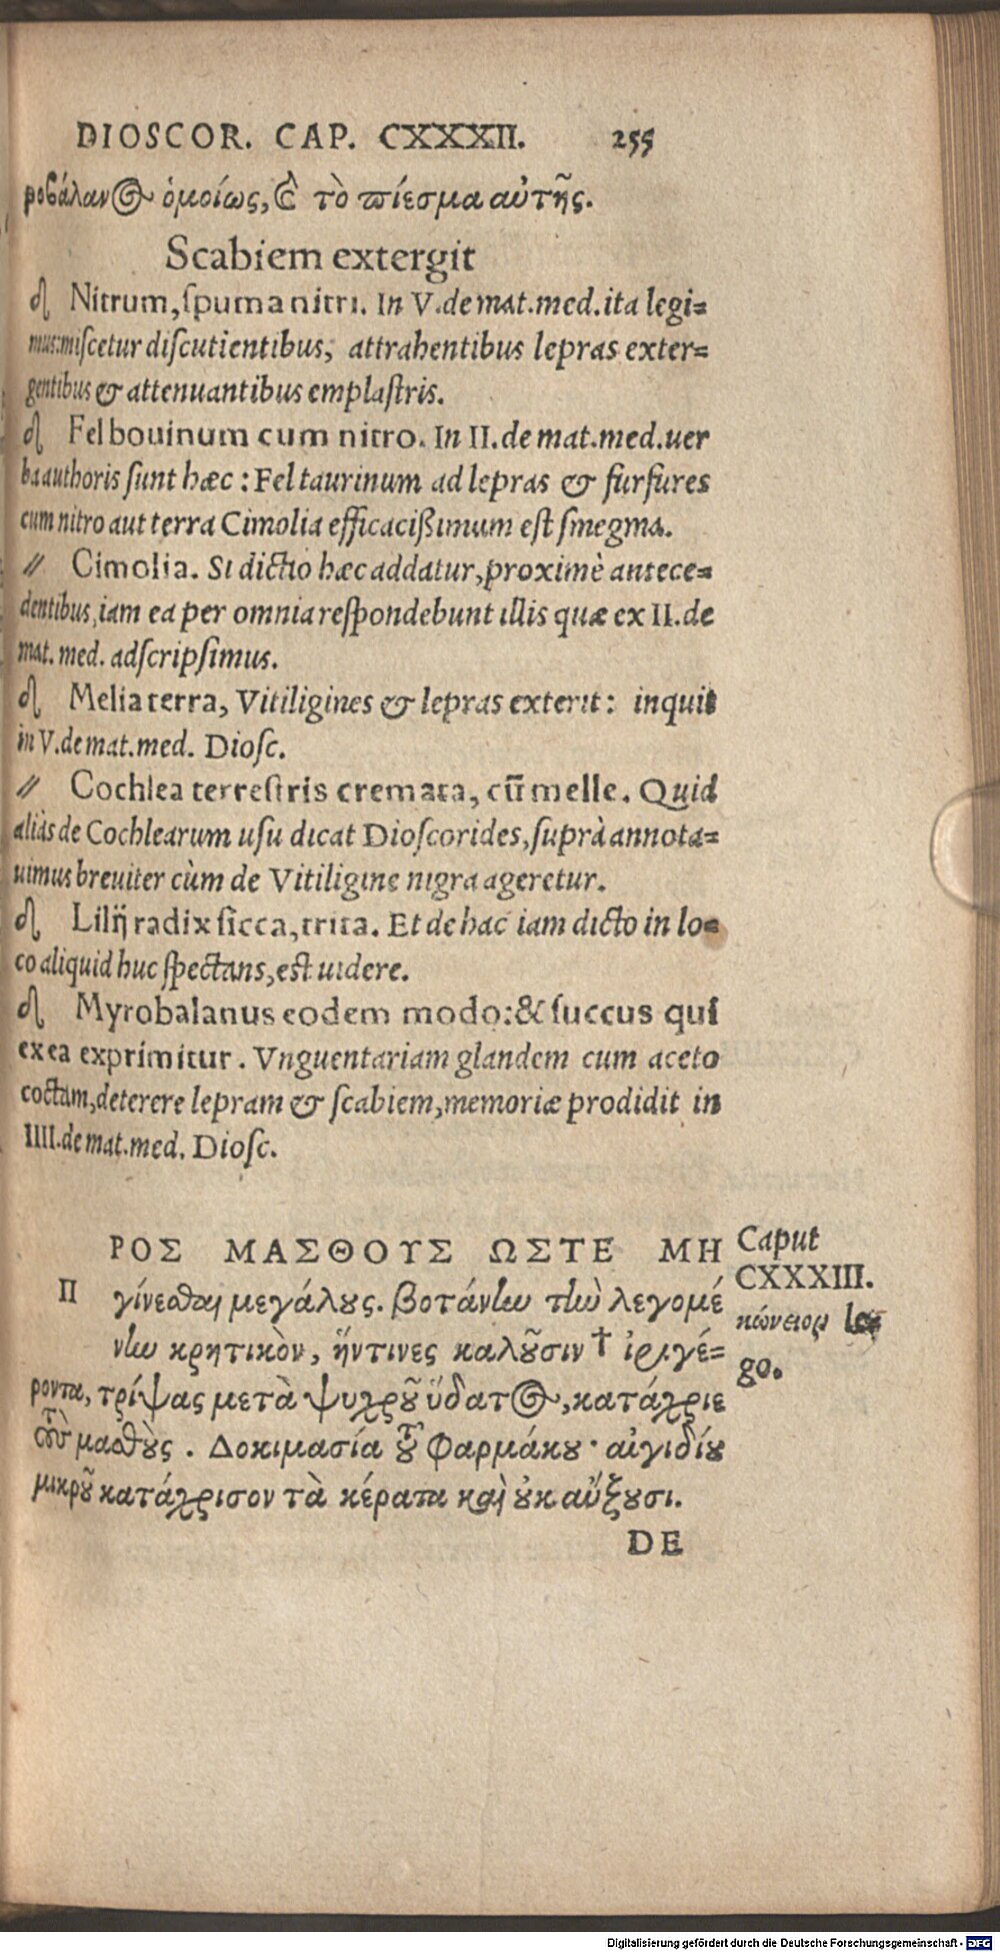 DIOSCOR. CAP. CXXXII. 255
ροβάλανος ὁμοίως, καὶ τὸ πίεσμα αὐτῆς.
Scabiem extergit
Nitrum, ſpuma nitri. In V. de mat. med. ita legi=
mus: miſcetur diſcutientibus, attrahentibus lepras exter=
gentibus & attenuantibus emplaſtris.
Fel bouinum cum nitro. In II. de mat. med. uer
ba authoris ſunt hæc: Fel taurinum ad lepras & furfures
cum nitro aut terra Cimolia efficacißimum eſt ſmegma.
// Cimolia. Si dictio hæc addatur, proximè antece=
dentibus, iam ea per omnia reſpondebunt illis quæ ex II. de
mat. med. adſcripſimus.
Melia terra, Vitiligines & lepras exterit: inquit
in V. de mat. med. Dioſc.
// Cochlea terreſtris cremata, cū melle. Quid
aliàs de Cochlearum uſu dicat Dioſcorides, ſuprà annota=
uimus breuiter cùm de Vitiligine nigra ageretur.
Lilij radix ſicca, trita. Et de hac iam dicto in lo=
co aliquid huc ſpectans, eſt uidere.
Myrobalanus eodem modo: & ſuccus qui
ex ea exprimitur. Vnguentariam glandem cum aceto
coctam, deterere lepram & ſcabiem, memoriæ prodidit in
IIII. de mat. med. Dioſc.
ΠΡΟΣ ΜΑΣΘΟΥΣ ΩΣΤΕ ΜΗ
γίνεσθαι μεγάλους. βοτάνην τὴν λεγομέ
νην κρητικὸν, ἥντινες καλοῦσιν † ἠριγέ=
ροντα, τρίψας μετὰ ψυχροῦ ὕδατος, κατάχριε
τοὺς μασθοὺς. Δοκιμασία τοῦ φαρμάκου· αἰγιδίου
μικροῦ κατάχρισον τὰ κέρατα καὶ οὐκ αὔξουσι.
Caput
CXXXIII.
κώνειον le=
go.
DE
Digitalisierung gefördert durch die Deutsche Forschungsgemeinschaft - DFG